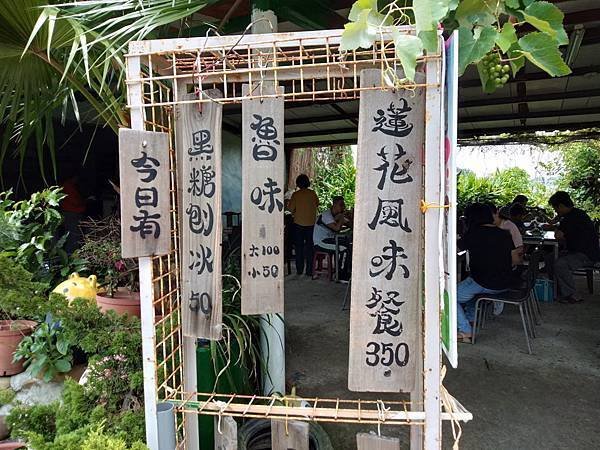 今日有
黑糖刨冰 50
魯味
大100
小50
蓮花風味餐 350